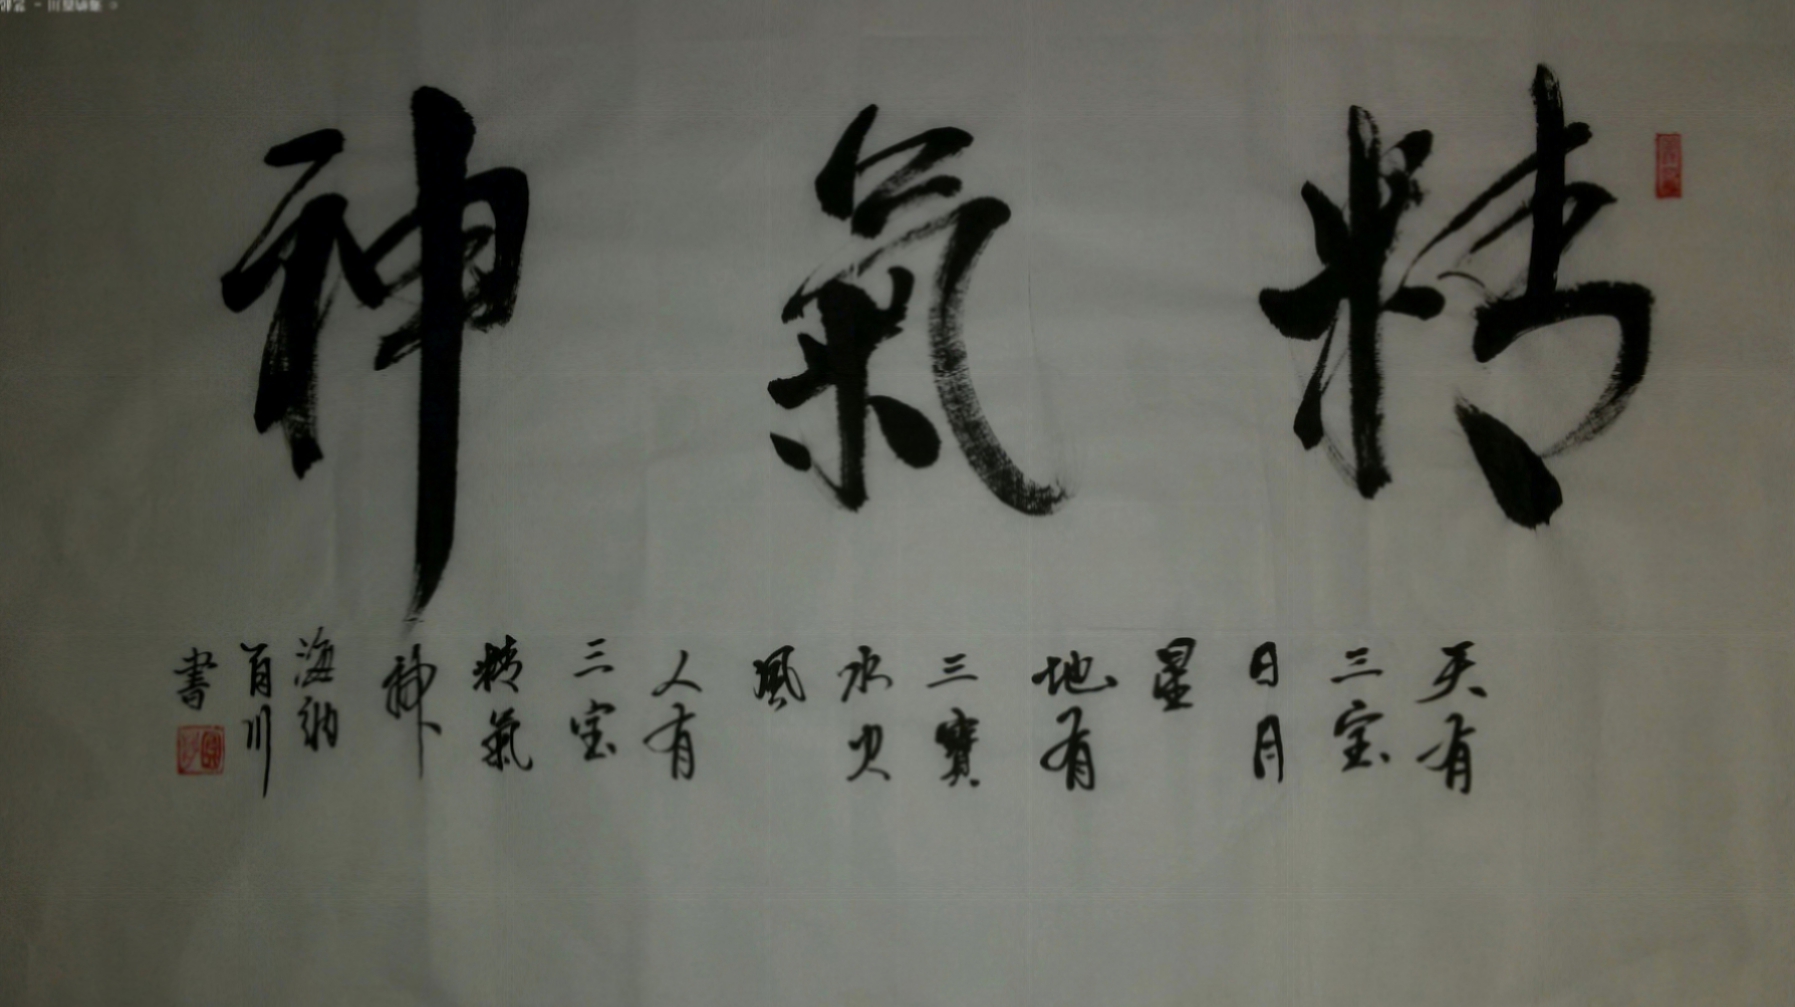 精氣神
天有
三宝
日月
星
地有
三寶
水火
風
人有
三宝
精氣
神
海納
百川
書